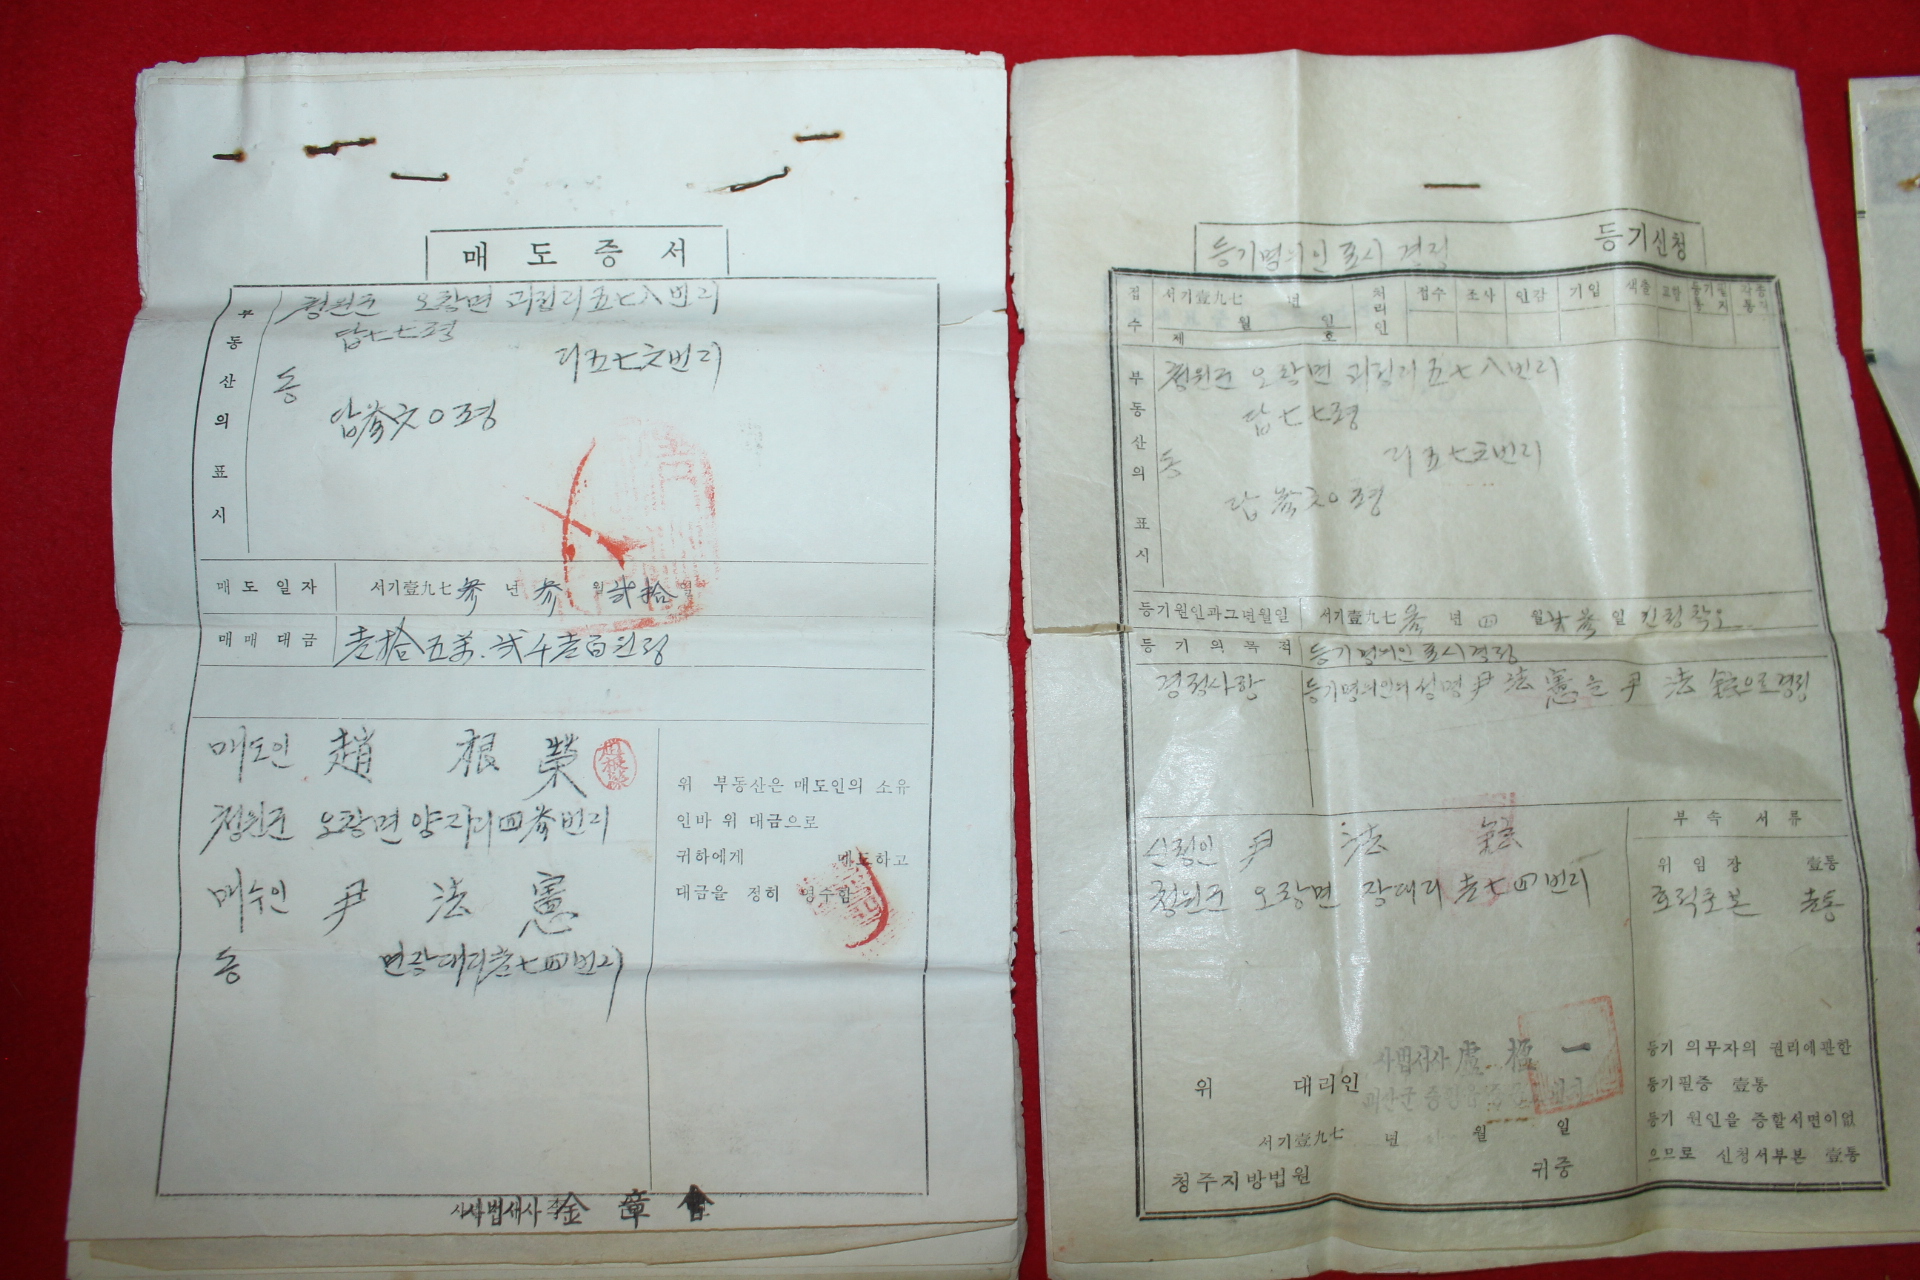 매도증서
부동산의 표시
청원군 오창면 괴정리 五七八번지
답 七七평
동 리 五七六번지
답 參六〇평
매도일자 서기壹九七參년 參월 貳拾일
매매대금 壱拾五萬貳千壱百원정
매도인 趙根榮
청원군 오창면 양지리 四參번지
매수인 尹法憲
동 면 장대리 壱七四번지
위 부동산은 매도인의 소유
인바 위 대금으로
귀하에게 매도하고
대금을 정히 영수함
사법서사 金章會
등기명의인표시경정 등기신청
접수 서기壹九七 년 월 일 제 호
처리인 접수 조사 인감 기입 색출 교합
부동산의 표시
청원군 오창면 괴정리 五七八번지
답 七七평
동 리 五七六번지
답 參六〇평
등기원인과그년월일 서기壹九七參년 四월 일 신청착오
등기의목적 등기명의인표시경정
경정사항 등기명의인의 성명 尹法憲을 尹法 으로 경정
신청인 尹法
청원군 오창면 장대리 壱七四번지
부속서류
위임장 壹通
호적초본 壱통
등기 의무자의 권리에관한
등기필증 壹通
등기 원인을 증할서면이없
으므로 신청서부본 壹通
위 대리인 사법서사 一
괴산군 증평읍
서기壹九七 년 월 일
청주지방법원 귀중